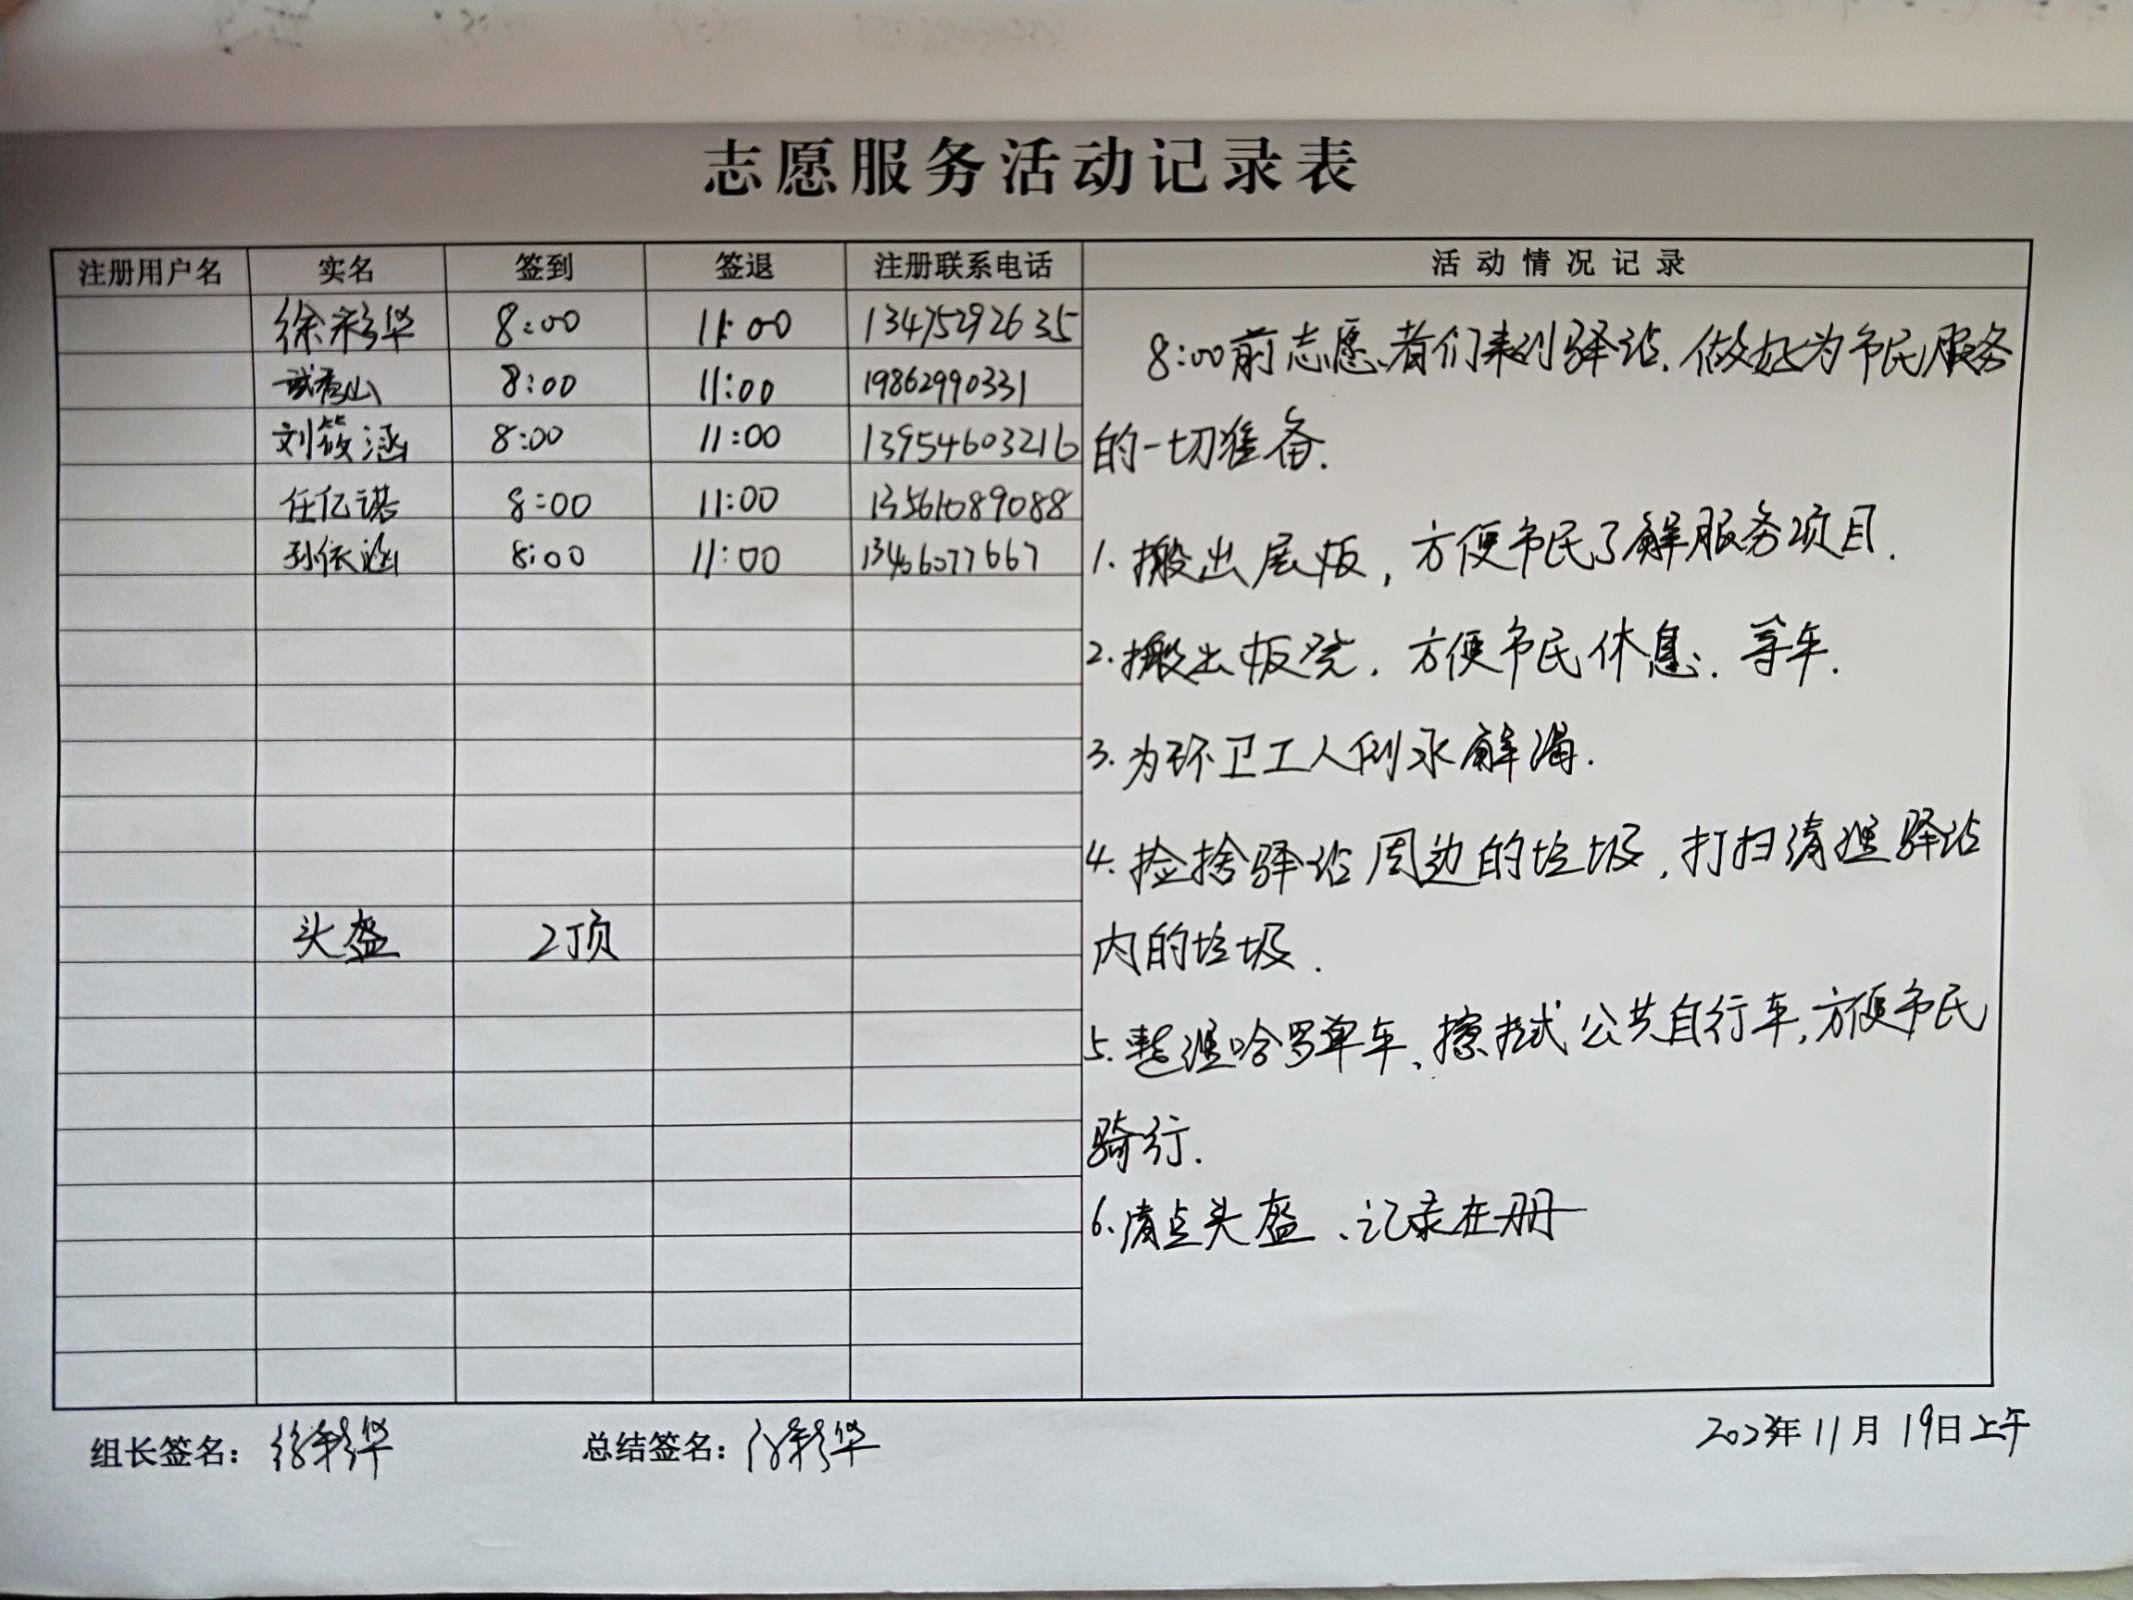 志愿服务活动记录表
注册用户名 实名 签到 签退 注册联系电话 活动情况记录
徐彩华 8:00 11:00 13475292635
武秀山 8:00 11:00 19862990331
刘筱涵 8:00 11:00 13954603216
任亿诺 8:00 11:00 13561089088
孙依涵 8:00 11:00 13406077667
头盔 2顶
8:00前志愿者们来到驿站.做好为市民服务
的一切准备.
1.搬出展板,方便市民了解服务项目.
2.搬出板凳.方便市民休息.等车.
3.为环卫工人倒水解渴.
4.捡拾驿站周边的垃圾,打扫清理驿站
内的垃圾.
5.整理哈罗单车、擦拭公共自行车,方便市民
骑行.
6.清点头盔、记录在册
组长签名：徐彩华 总结签名：徐彩华 2023年11月19日上午